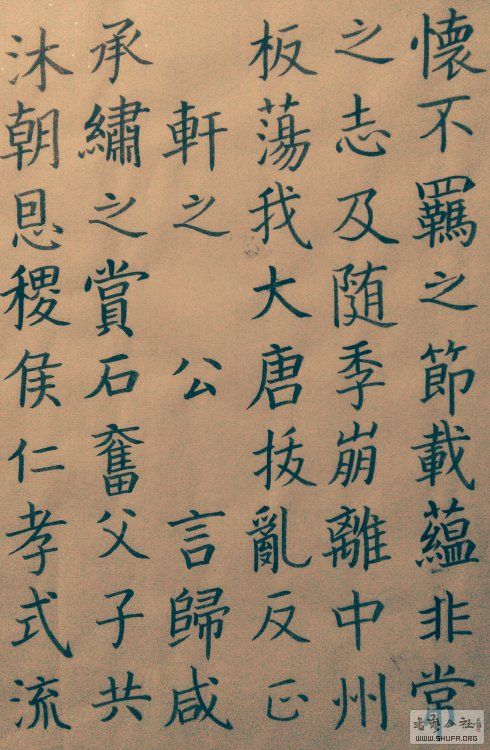 懷不羈之節載蘊非常
之志及随季崩離中州
板蕩我大唐拔亂反正
軒之 公 言歸咸
承繡之賞石奮父子共
沐朝恩稷侯仁孝式流
WWW.SHUFA.ORG